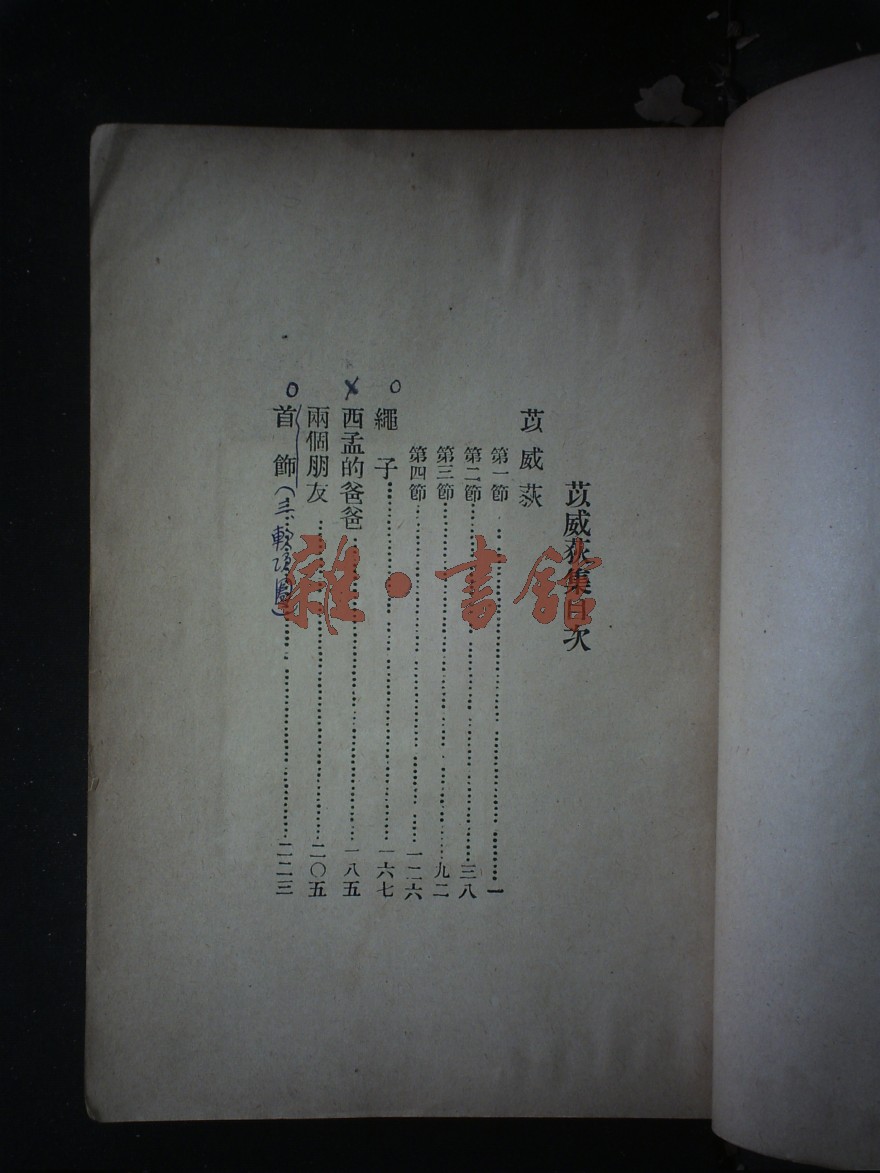 苡威荻集目次
苡威荻
第一節……一
第二節……三八
第三節……九二
第四節……一二六
繩子……一六七
西孟的爸爸……一八五
兩個朋友……二〇五
首飾(……二二三
雜·書館